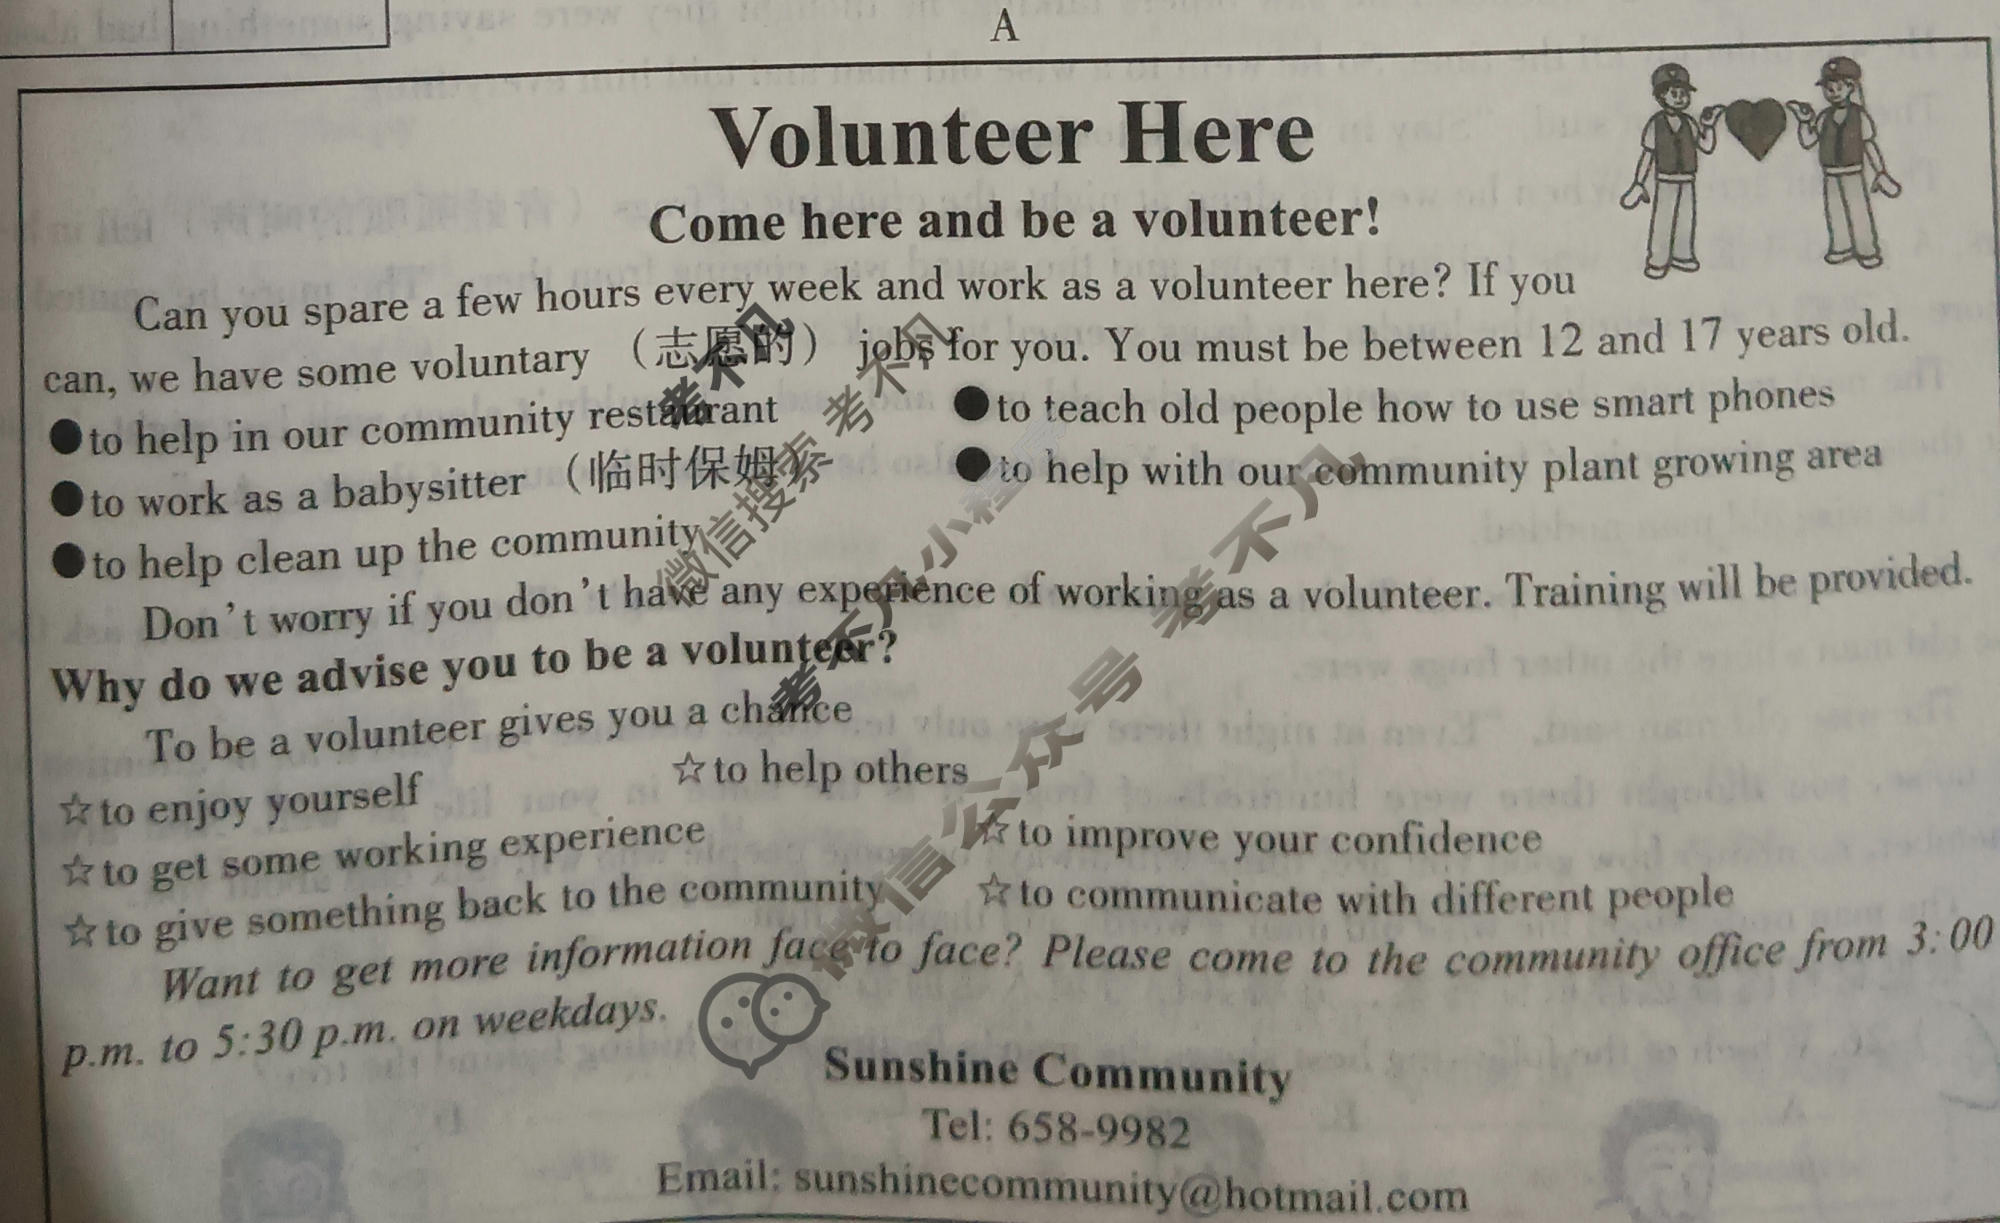 A
Volunteer Here
Come here and be a volunteer!
Can you spare a few hours every week and work as a volunteer here? If you
can, we have some voluntary （志愿的） jobs for you. You must be between 12 and 17 years old.
●to help in our community restaurant ●to teach old people how to use smart phones
●to work as a babysitter （临时保姆） ●to help with our community plant growing area
●to help clean up the community
Don't worry if you don't have any experience of working as a volunteer. Training will be provided.
Why do we advise you to be a volunteer?
To be a volunteer gives you a chance
☆to enjoy yourself ☆to help others
☆to get some working experience ☆to improve your confidence
☆to give something back to the community ☆to communicate with different people
Want to get more information face to face? Please come to the community office from 3:00
p.m. to 5:30 p.m. on weekdays.
Sunshine Community
Tel: 658-9982
Email: sunshinecommunity@hotmail.com
考不凡
微信搜索 考不凡
考不凡小程序
微信公众号 考不凡